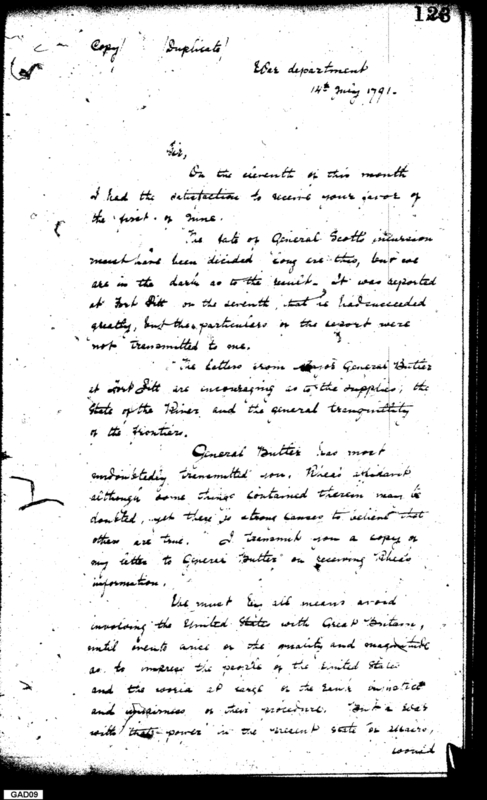 123
Copy/ /Duplicate/
War department
14th July 1791-
Sir,
On the eleventh of this month
I had the satisfaction to receive your favor of
the first of June.
The fate of General Scott's incursion
must have been decided long ere this, but we
are in the dark as to the result. It was reported
at Fort Pitt on the seventh, that he had succeeded
greatly, but the particulars or the report were
not transmitted to me.
The letters from Major General Butler
at Fort Pitt are encouraging as to the supplies, the
State of the River and the general tranquillity
of the frontiers.
General Butler has most
undoubtedly transmitted you, Rhea's affidavit
although some things contained therein may be
doubted, yet there is strong causes to believe that
others are true. I transmit you a copy of
my letter to General Butler on receiving Rhea's
information.
We must by all means avoid
involving the United States with Great Britain,
until events arise of the quality and magnitude
as to impress the people of the United States
and the world at large of the
and unfairness of their procedure. But a War
with that power in the present state of affairs,
would
GAD09